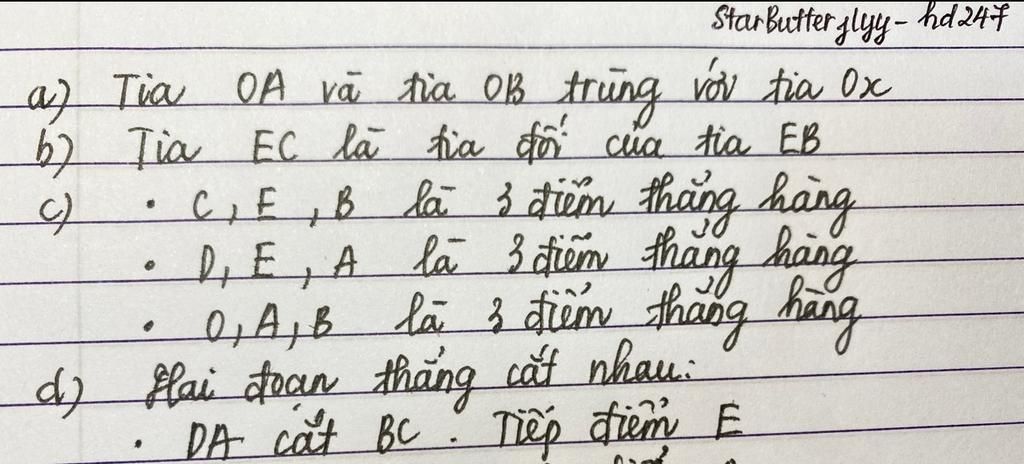 StarButterflyy - hd247
a) Tia OA và tia OB trùng với tia Ox
b) Tia EC là tia đối của tia EB
c) • C, E, B là 3 điểm thẳng hàng
• D, E, A là 3 điểm thẳng hàng
• O, A, B là 3 điểm thẳng hàng
d) Hai đoạn thẳng cắt nhau:
• DA cắt BC. Tiếp điểm E